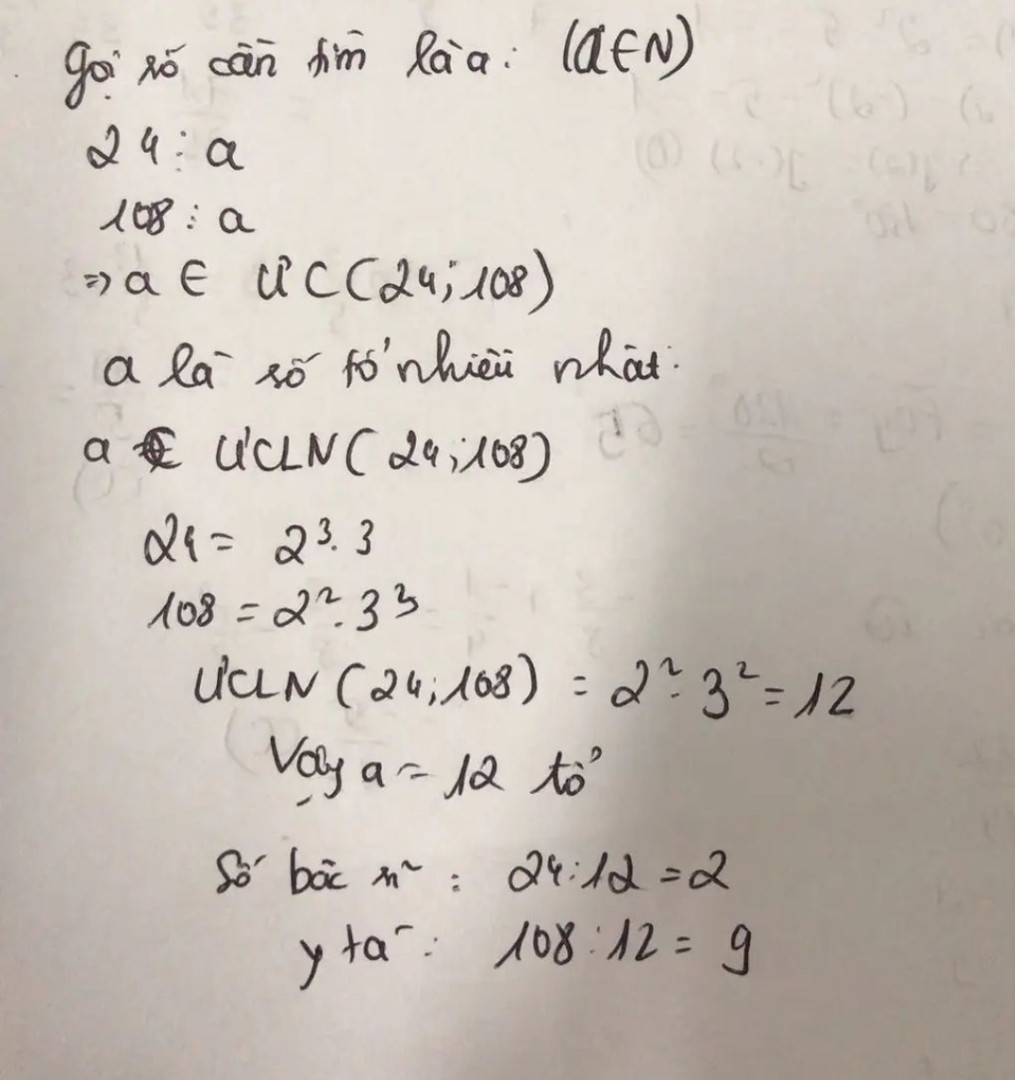 Gọi số cần tìm là a: (a∈N)
24 ⋮ a
108 ⋮ a
=> a ∈ ƯC(24;108)
a là số tổ nhiều nhất.
a ∈ ƯCLN(24;108)
24 = 2³.3
108 = 2².3³
ƯCLN(24;108) = 2².3² = 12
Vậy a = 12 tổ
Số bác sĩ : 24:12 = 2
y tá : 108:12 = 9